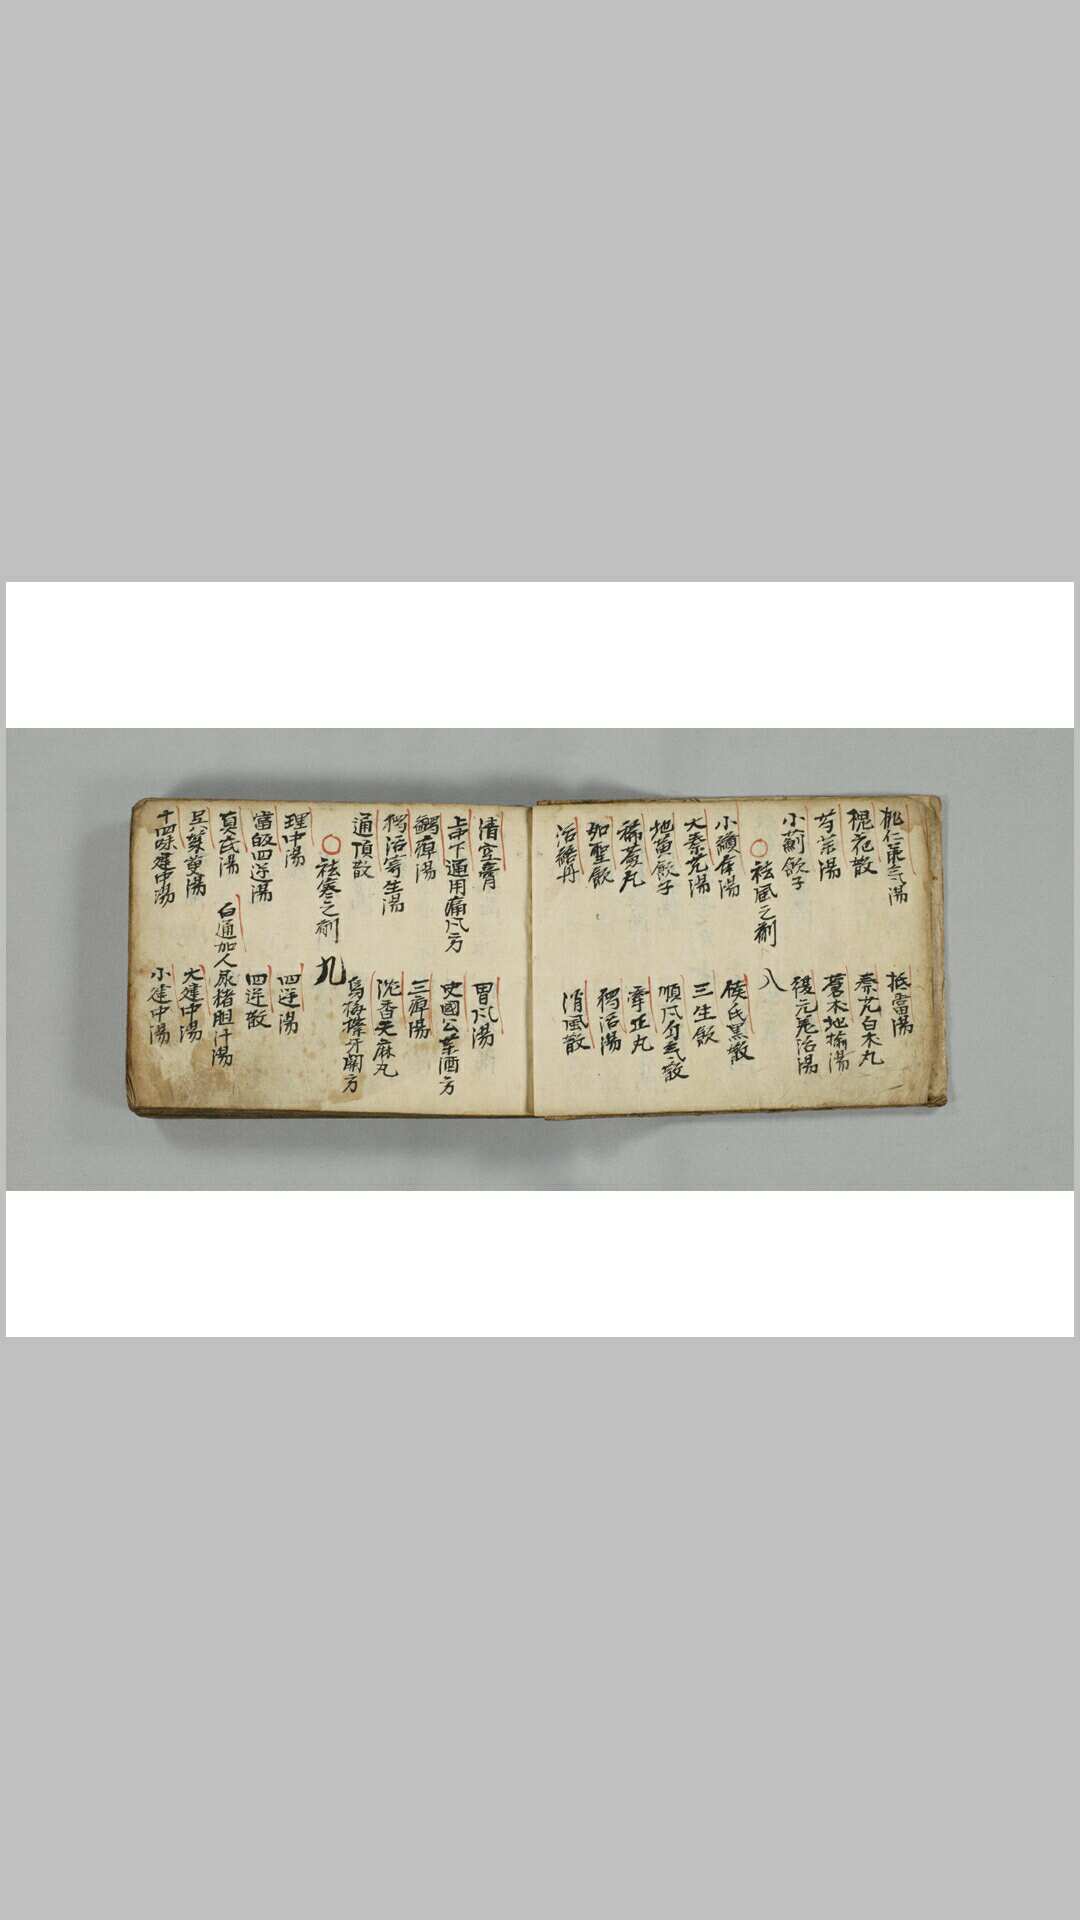 桃仁承气湯
抵當湯
槐花散
秦艽白朮丸
芎䓖湯
蒼朮地榆湯
小薊飲子
復元羌活湯
祛風之劑 八
小續命湯
侯氏黑散
大秦艽湯
三生飲
地黃飲子
順风勻气散
稀薟丸
牽正丸
如聖飲
獨活湯
活絡丹
消風散
清空膏
胃风湯
上中下通用痛风方
史國公藥酒方
蠲痺湯
三痺湯
獨活寄生湯
沈香天麻丸
通頂散
烏梅擦牙関方
祛寒之劑 九
理中湯
四逆湯
當皈四逆湯
四逆散
真武湯
白通加人尿猪胆汁湯
吳茱萸湯
大建中湯
十四味建中湯
小建中湯